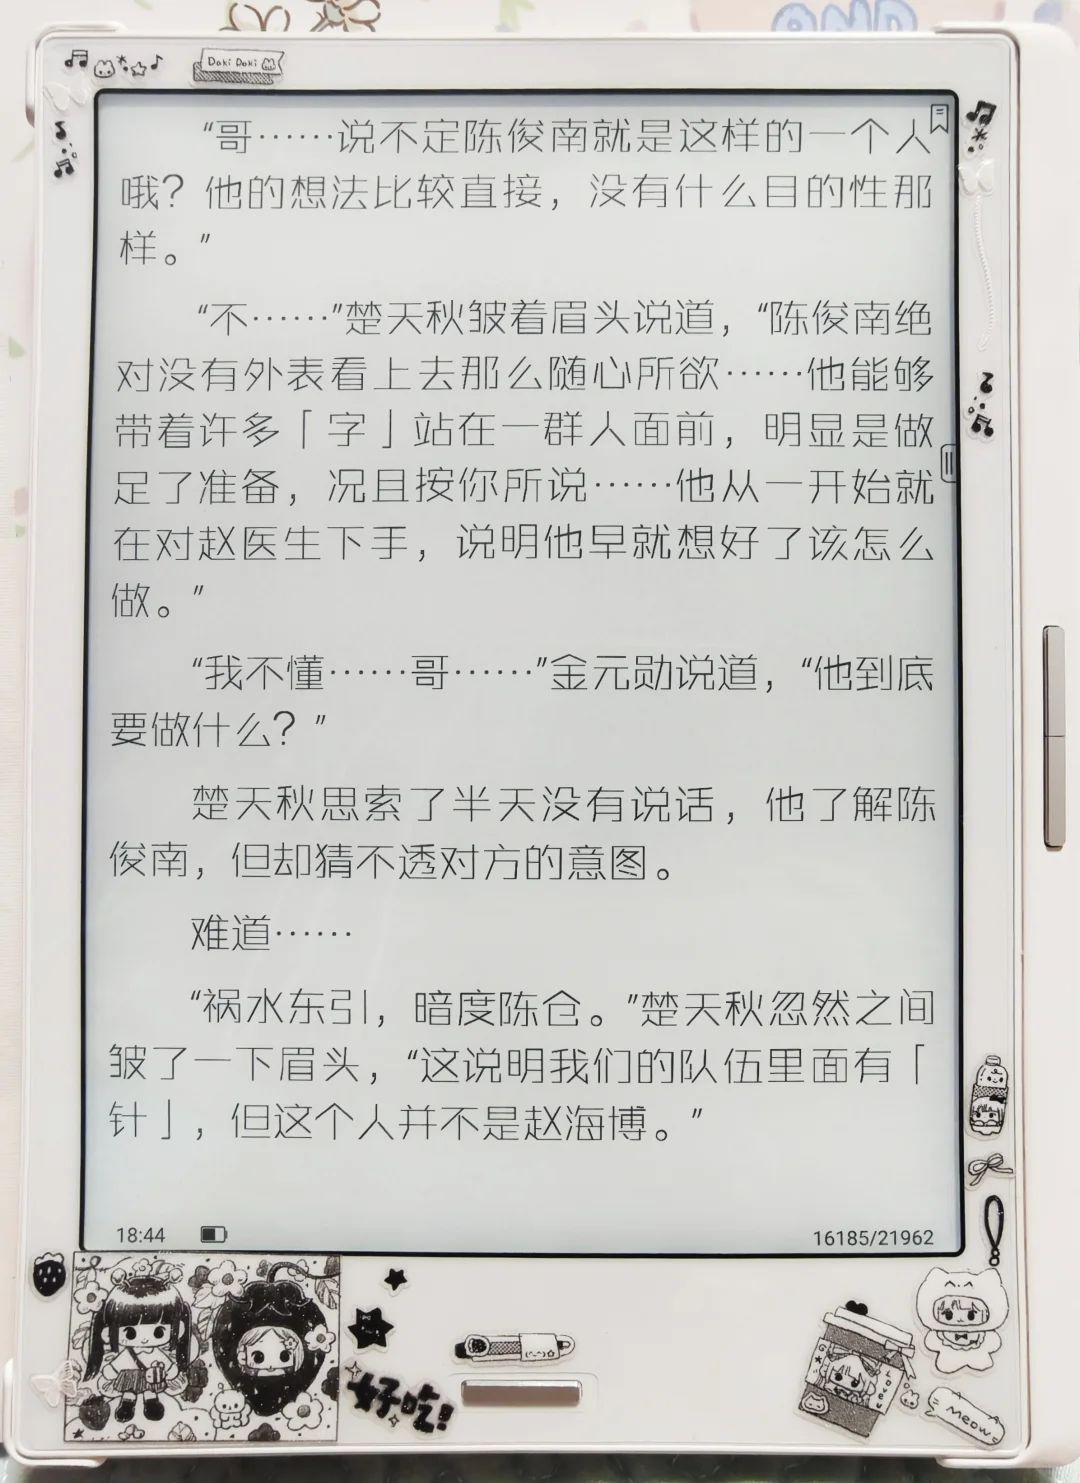 OND
Doki Doki
“哥……说不定陈俊南就是这样的一个人
哦？他的想法比较直接，没有什么目的性那
样。”
“不……”楚天秋皱着眉头说道，“陈俊南绝
对没有外表看上去那么随心所欲……他能够
带着许多「字」站在一群人面前，明显是做
足了准备，况且按你所说……他从一开始就
在对赵医生下手，说明他早就想好了该怎么
做。”
“我不懂……哥……”金元勋说道，“他到底
要做什么？”
楚天秋思索了半天没有说话，他了解陈
俊南，但却猜不透对方的意图。
难道……
“祸水东引，暗度陈仓。”楚天秋忽然之间
皱了一下眉头，“这说明我们的队伍里面有「
针」，但这个人并不是赵海博。”
18:44
16185/21962
好吃!
Meow